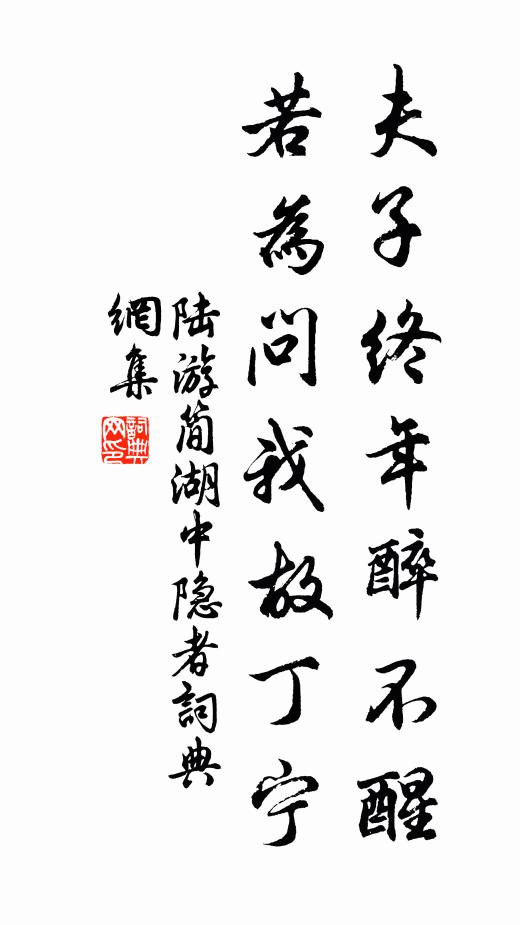 夫子终年醉不醒
若為问我故丁宁
陆游简湖中隐者詞典
網集
詞典
网印